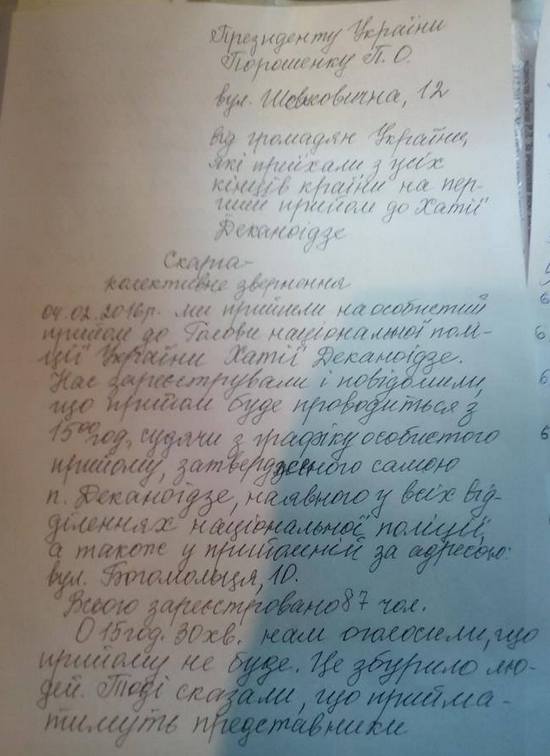 Президенту України
Порошенку П.О.
вул. Шовковична, 12
від громадян України,
які приїхали з усіх
кінців країни на пер-
ший прийом до Хатії
Деканоідзе
Скарга-
колективне звернення
04.02.2016р. ми прийшли на особистий
прийом до Голови національної полі-
ції України Хатії Деканоідзе.
Нас зареєстрували і повідомили,
що прийом буде проводиться з
15⁰⁰год, судячи з графіку особистого
прийому, затвердженого самою
п. Деканоідзе, наявного у всіх від-
діленнях національної поліції,
а також у приймальній за адресою:
вул. Богомольця, 10.
Всього зареєстровано 87 чол.
О 15год. 30хв. нам оголосили, що
прийому не буде. Це збурило лю-
дей. Тоді сказали, що прийма-
тимуть представники